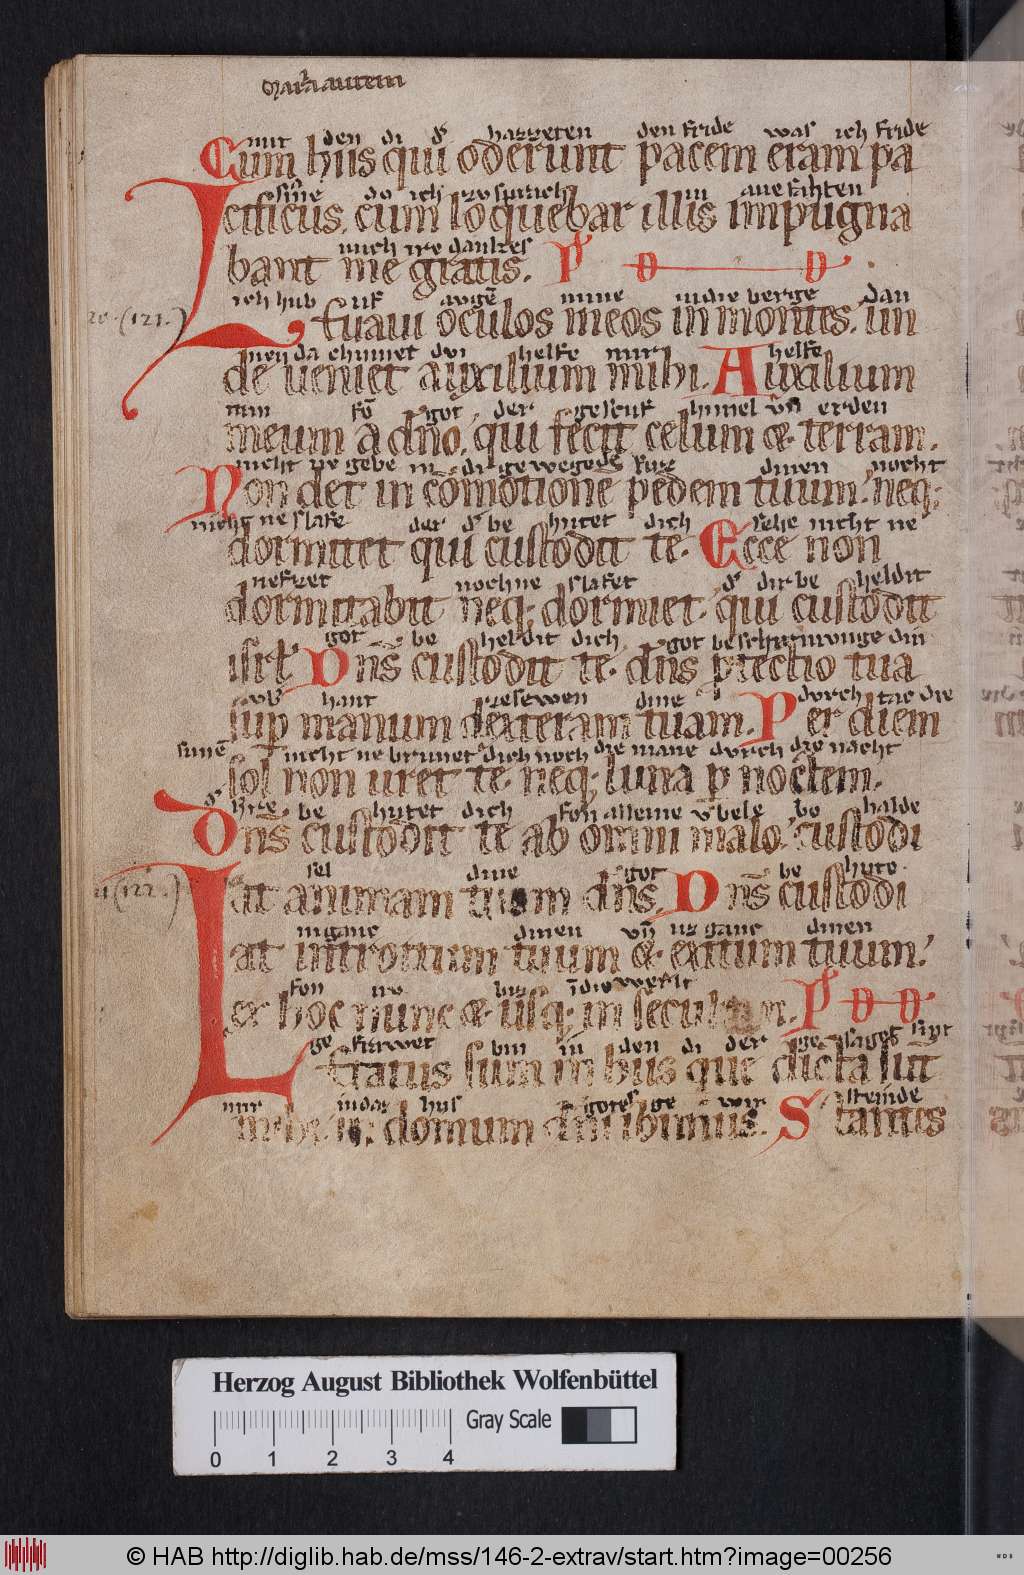 Maria autem
mit den di d hazzeten den fride was ich fride
Cum hiis qui oderunt pacem eram pa
do ich zv sprach in
cificus. cum loquebar illis impugna
mich
bant me gratis. Ps D D
ich hub uf augē mine in die berge dan
Leuaui oculos meos in montes. un
nen da chumet dvi helfe mir helfe
de ueniet auxilium mihi. Auxilium
min fō got der gescuf himel vn̄ erden
meum a dn̄o, qui fecit celum & terram.
nicht ne gebe in di gewegede fuze dinen nocht
Non det in cōmotionē pedem tuum. neq;
nicht ne slafe der d be hutet dich sehe nicht ne
dormitet qui custodit te. Ecce non
nefzet noch ne slafet d dir be heldit
dormitabit neq; dormiet. qui custodit
got be heldit dich got beschirmunge din
isrl̄ Dn̄s custodit te. dn̄s ꝑtectio tua
vb hant zesewen dine dvrch tac die
sup manum dexteram tuam. Per diem
sunē nicht ne brinnet dich noch die mane dvrch die nacht
sol non uret te. neq; luna p noctem.
be hutet dich fon alleme vbele be halde
Dn̄s custodit te ab omni malo. custodi
20. (121.)
sel dine got be hute
at animam tuam dn̄s. Dn̄s custodi
(122.)
inganc dinen vn̄ uzganc dinen
at introitum tuum & exitum tuum.
fon nv biz
ex hoc nunc & usq; in seculum. Ps D D
ge frewet bin in den di der ge saget sint
Letatus sum in hiis que dicta sut
mir indaz hus gotes ge wir steinde
mihi in domum dn̄i ibimus. Stantes
Herzog August Bibliothek Wolfenbüttel
Gray Scale
0 1 2 3 4
© HAB http://diglib.hab.de/mss/146-2-extrav/start.htm?image=00256